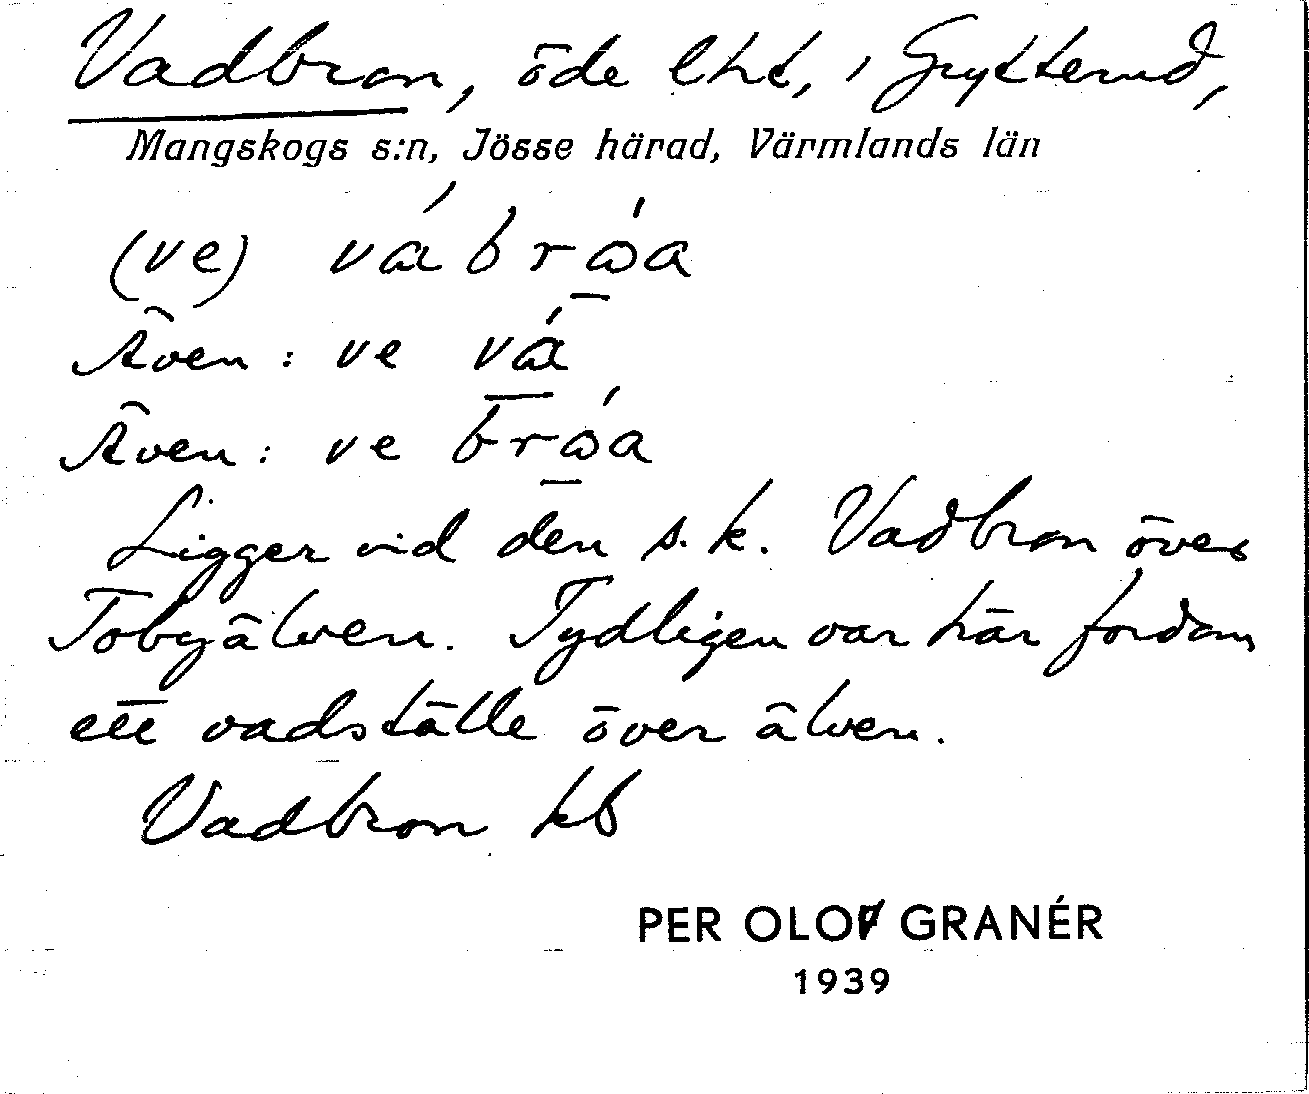 Vadbron, öde lht, i Grytterud,
Mangskogs s:n, Jösse härad, Värmlands län
(ve)
Även: ve
Även: ve
Ligger vid den s.k. Vadbron över
Tobyälven. Tydligen var här fordom
ett vadställe över älven.
Vadbron kb
PER OLOV GRANÉR
1939